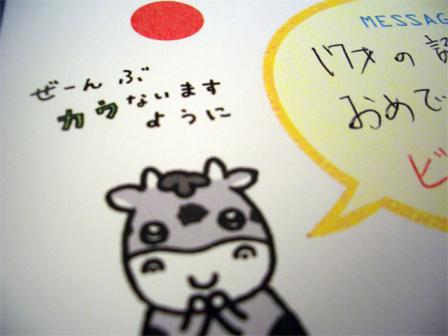 ぜーんぶ
カウないます
ように
MESSAG
の
おめで
ビ